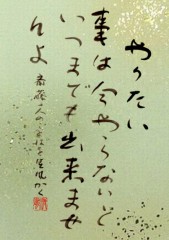 やりたい
事は今やらないと
いつまでも出来ませ
んよ
斎藤一人のことばを